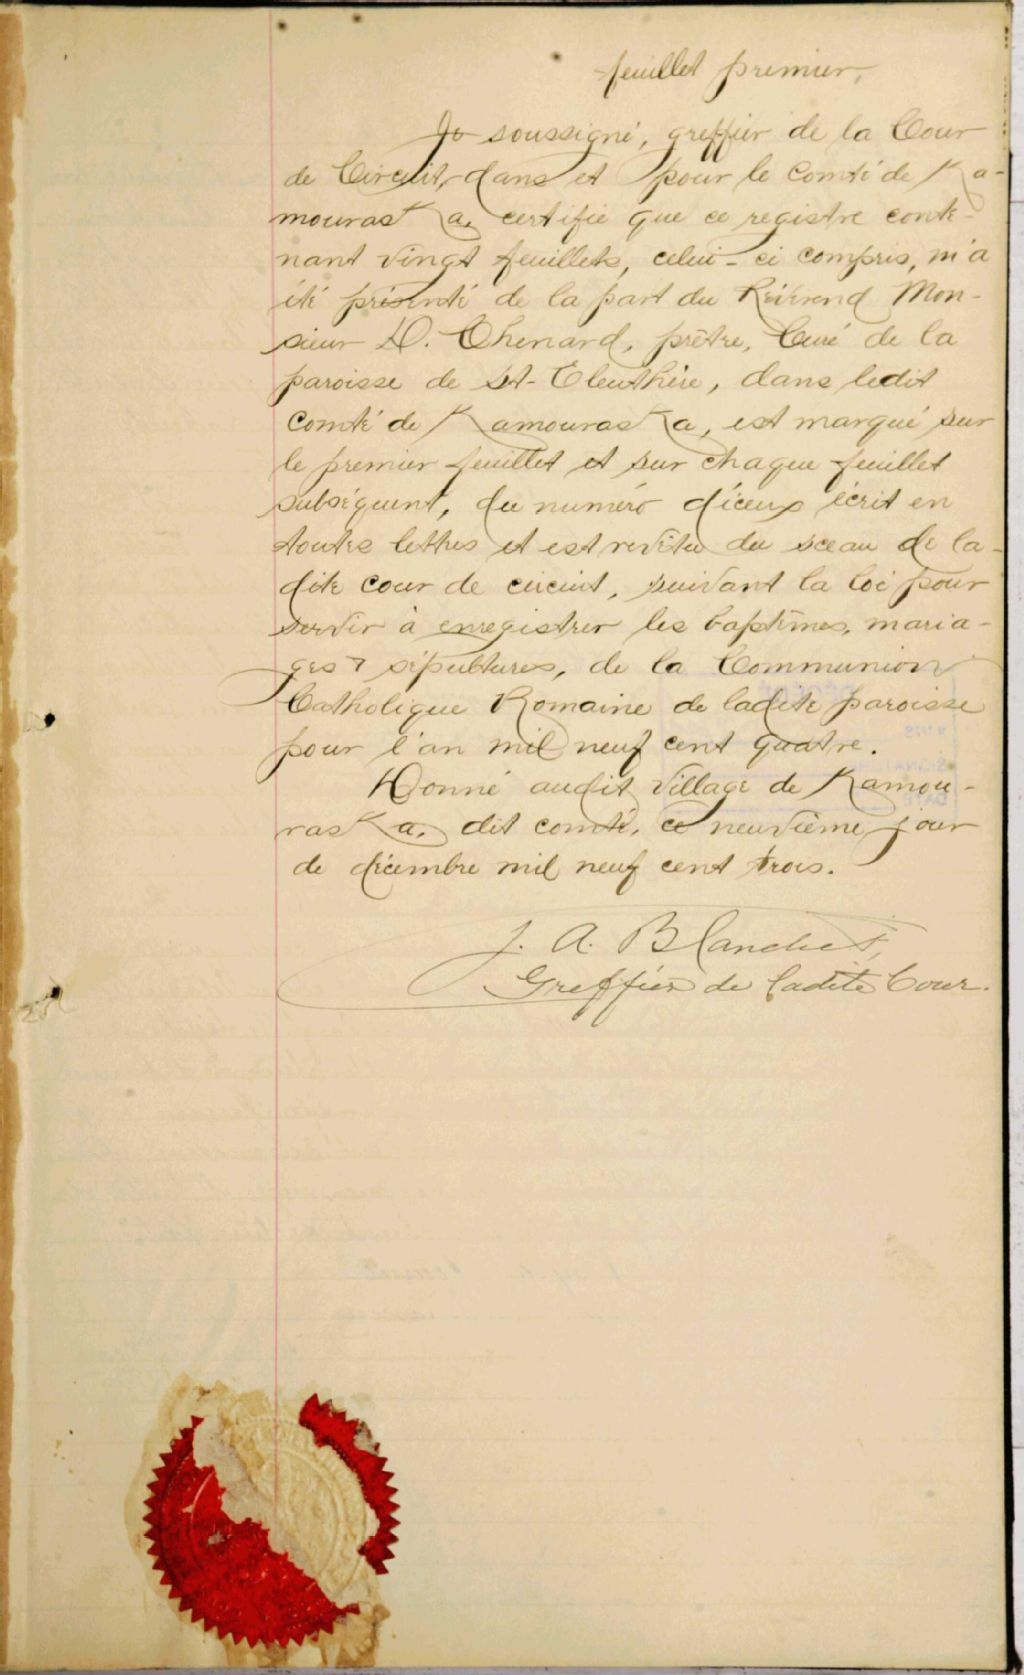 feuillet premier,
Je soussigné, greffier de la Cour
de Circuit, dans et pour le Comté de Ka-
mouraska, certifie que ce registre conte-
nant vingt feuillets, celui-ci compris, m'a
été présenté de la part du Révérend Mon-
sieur D. Chenard, prêtre, Curé de la
paroisse de St-Eleuthère, dans ledit
Comté de Kamouraska, est marqué sur
le premier feuillet et sur chaque feuillet
subséquent, du numéro d'iceux écrit en
toutes lettres et est revêtu du sceau de la-
dite cour de circuit, suivant la loi pour
servir à enregistrer les baptêmes, maria-
ges & sépultures, de la Communion
Catholique Romaine de ladite paroisse
pour l'an mil neuf cent quatre.
Donné audit Village de Kamou-
raska, dit comté, ce neuvième jour
de décembre mil neuf cent trois.
J. A. Blanchet,
Greffier de ladite Cour.